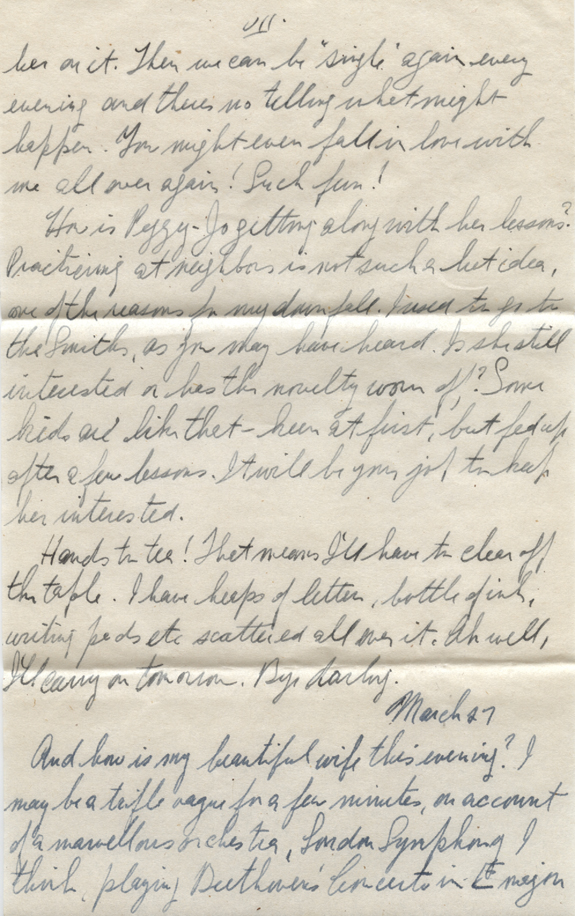 VII.
her on it. Then we can be "single" again every
evening and theres no telling what might
happen. You might even fall in love with
me all over again! Such fun!
How is Peggy-Jo getting along with her lessons?
Practicing at neighbors is not such a hot idea,
one of the reasons for my downfall. I used to go to
the Smiths, as you may have heard. Is she still
interested or has the novelty worn off? Some
kids are like that - keen at first, but fed up
after a few lessons. It will be your job to keep
her interested.
Hands to tea! That means I'll have to clear off
the table. I have heaps of letters, bottle of ink,
writing pads etc scattered all over it. Ah well,
I'll carry on tomorrow. Bye darling.
March 27
And how is my beautiful wife this evening? I
may be a trifle vague for a few minutes, on account
of a marvellous orchestra, London Symphony I
think, playing Beethoven's Concerto in major